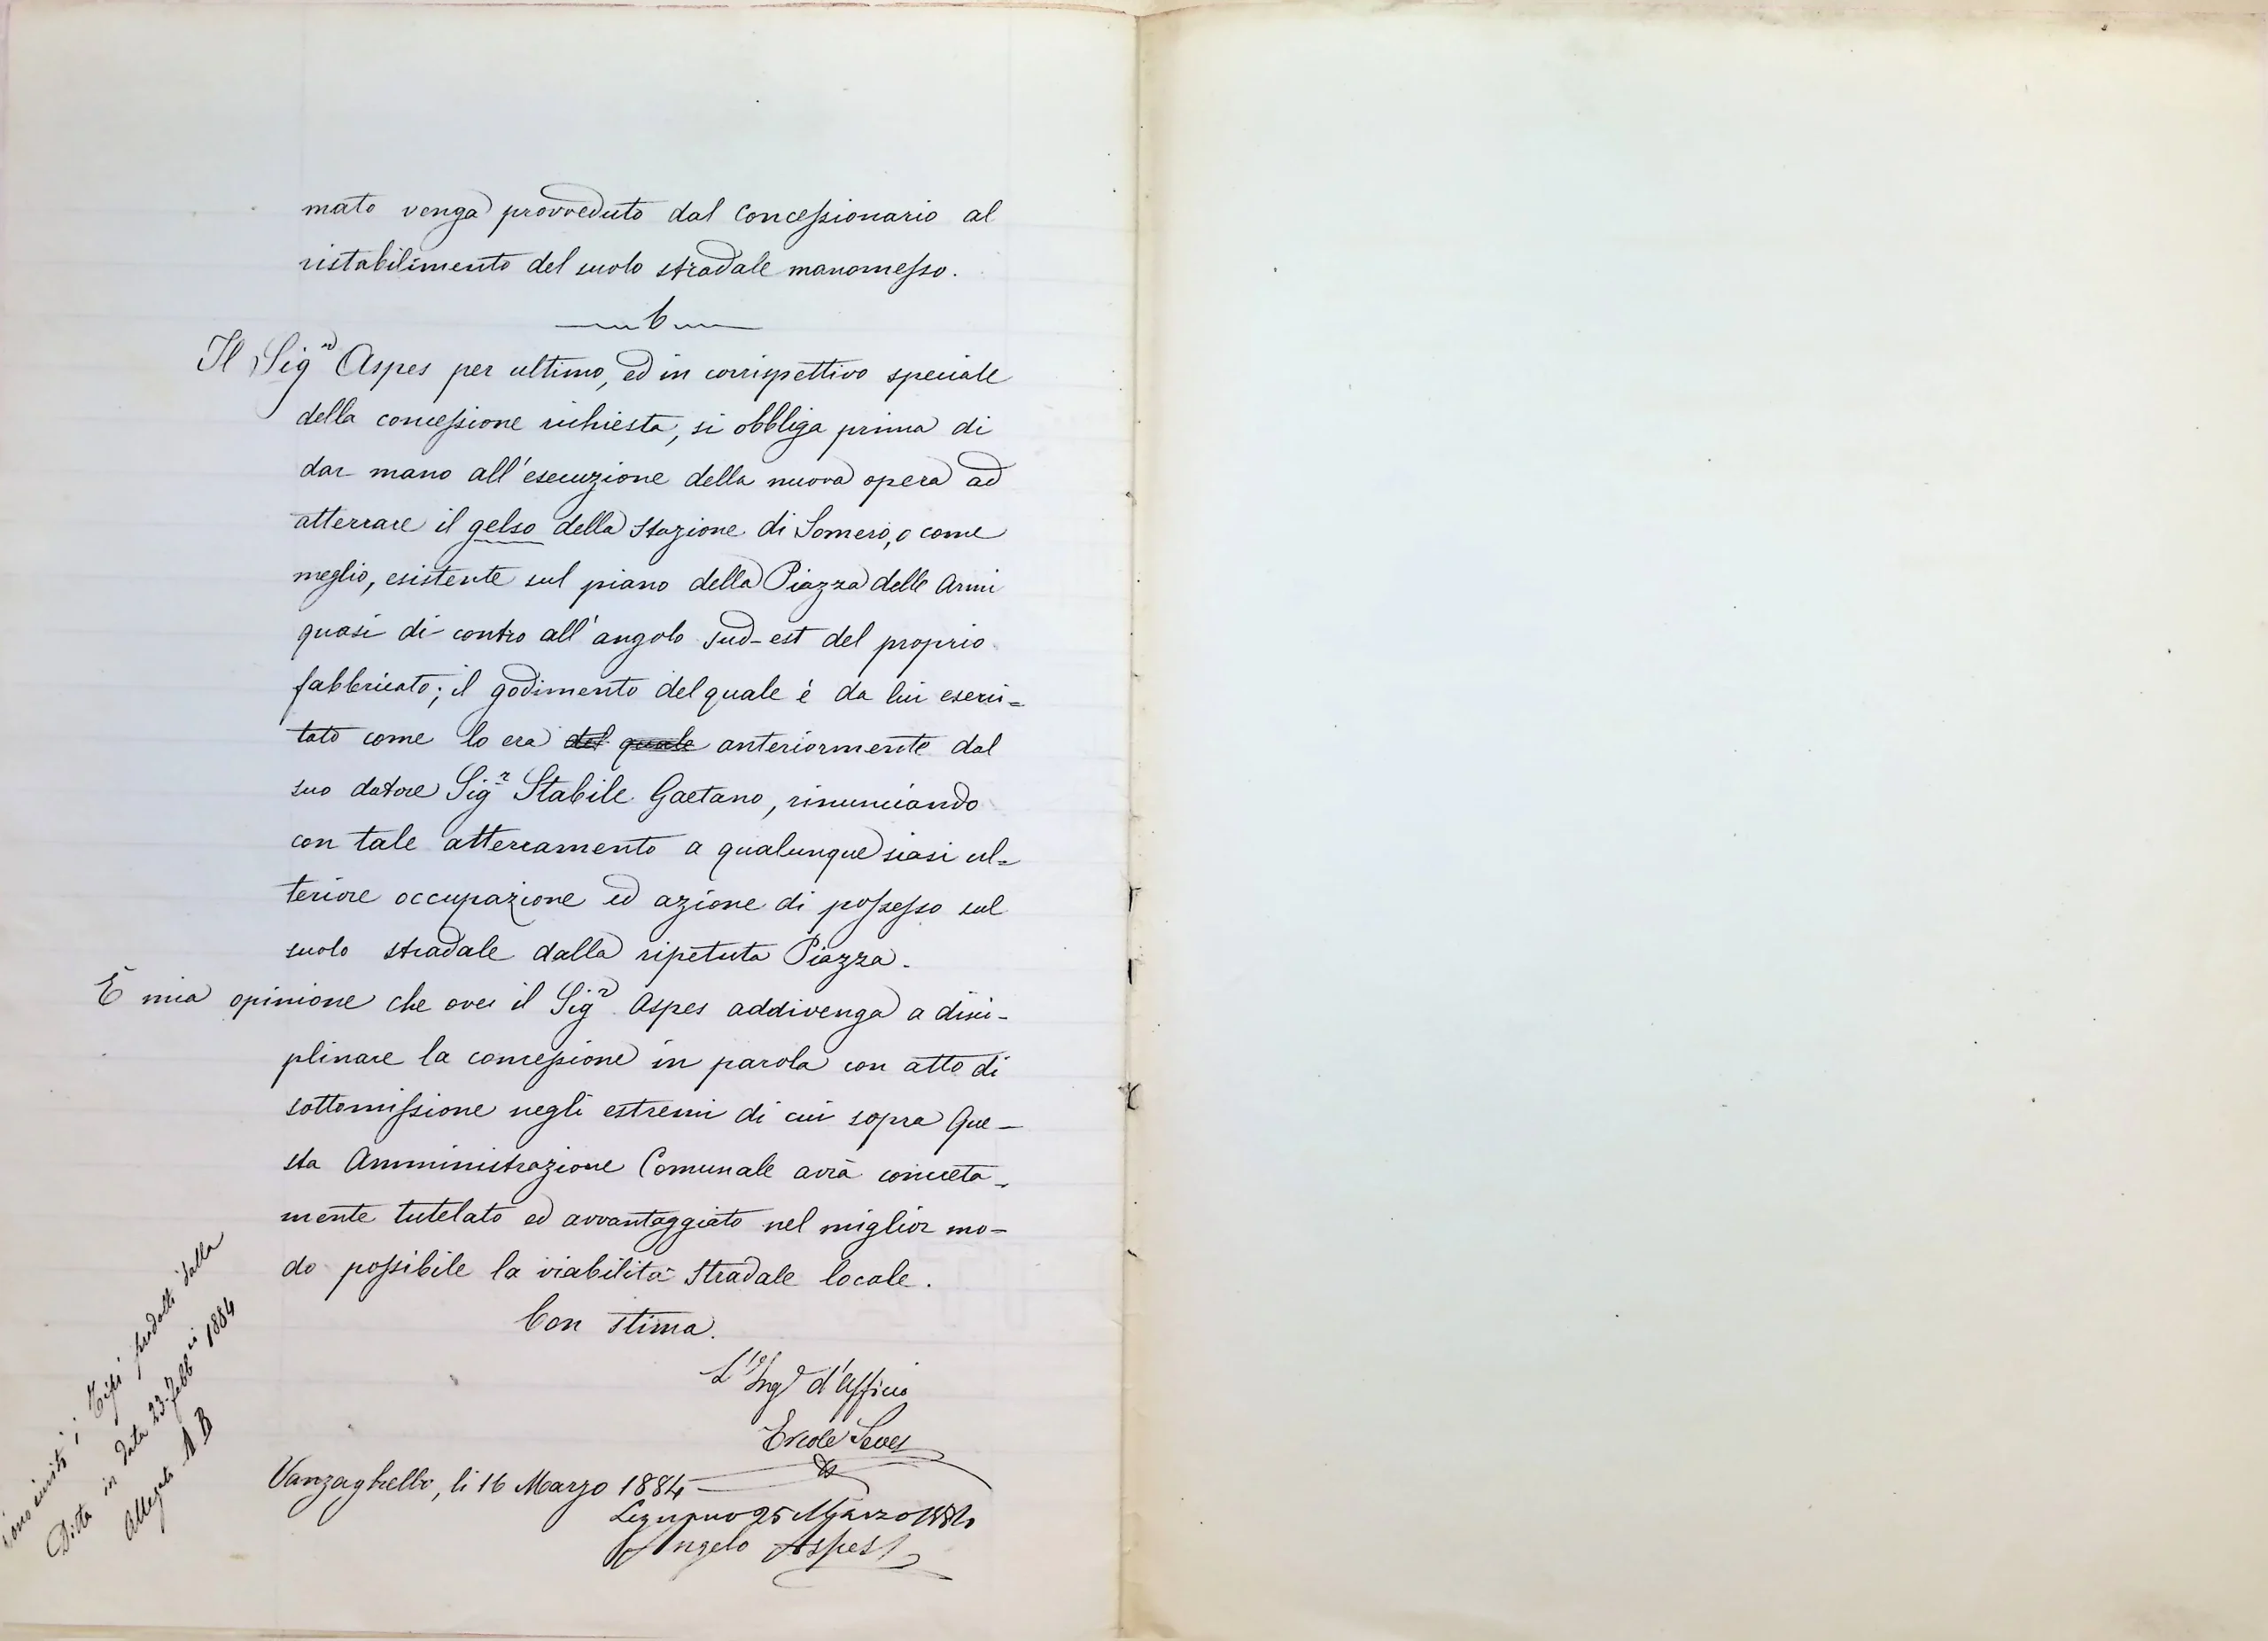 mato venga provveduto dal Concessionario al
ristabilimento del suolo stradale manomesso.
6
Il Sig.r Aspes per ultimo, ed in corrispettivo speciale
della concessione richiesta, si obbliga prima di
dar mano all'esecuzione della nuova opera ad
atterrare il gelso della Stazione di Somero, o come
meglio, esistente sul piano della Piazza delle Armi
quasi di contro all'angolo sud-est del proprio
fabbricato; il godimento del quale è da lui eserci=
tato come lo era del quale anteriormente dal
suo datore Sig.r Stabile Gaetano, rinunciando
con tale atterramento a qualunque siasi ul=
teriore occupazione ed azione di possesso sul
suolo stradale dalla ripetuta Piazza.
È mia opinione che ove il Sig.r Aspes addivenga a disci-
plinare la concessione in parola con atto di
sottomissione negli estremi di cui sopra Que-
sta Amministrazione Comunale avrà concreta-
mente tutelato ed avvantaggiato nel miglior mo-
do possibile la viabilità Stradale locale.
Con stima.
L'Ing.e d'Ufficio
Ercole
Vanzaghello, li 16 Marzo 1884
Legnano 25 Marzo 1884
Angelo Aspes
sono uniti i Tipi prodotti dalla
Ditta in data 23 Febb 1884
Allegati A B